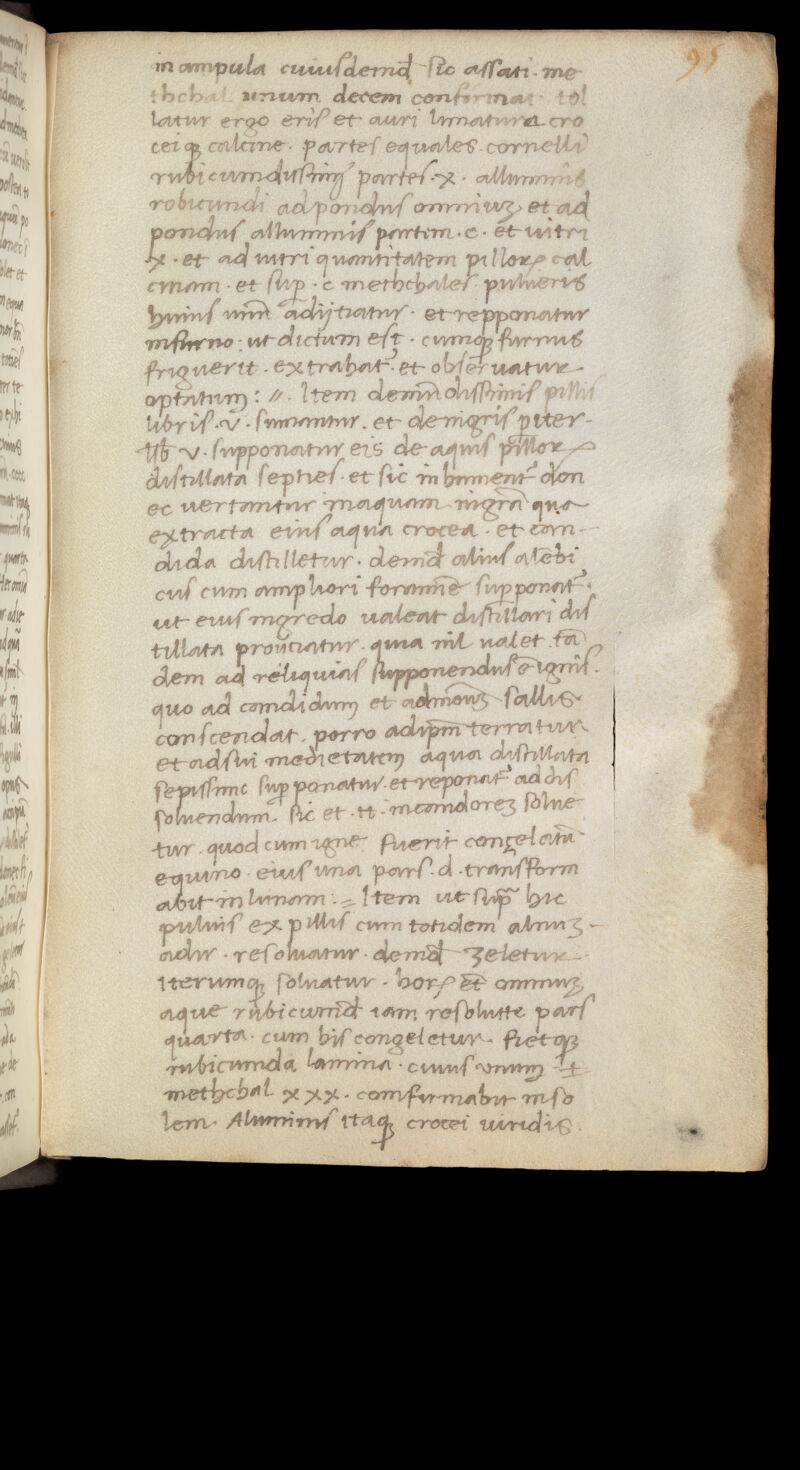 95
in ampula cuiusdemd̄ sic assati · me
thchal unum decem confirmat tol
latur ergo eris et auri limatura cro
ceiqꝫ calcine · partes equales · cornelli
rubicumdissimi partes · x · alluminis
robicundi ad pondus omniuꝫ et ad
pondus alluminis partem · c · et uitri
x · et ad uitri quantitatem pilloꝝ cal
cinam · et suꝑ · c methchales pulueris
huius nūm adijtiatur · et repponatur
in furno : ut dictum est · cumqꝫ furnus
friguerit · extrahat᷑ et obseruatur
optatum : //. Item de mūdissimis pillis
libris · v̄ · sumantur · et de nigris ꝑiter
lib̄ v · supponatur eis de aquis pilloꝝ
distillata septies · et sic inhument᷑ don
ec uertantur in aquam nigrā qua
extracta eius aqua crocea · et can
dida distilletur · demd̄ alius alēbi
cus cum ampliori foramīe supponat᷑ ·
ut eius nigredo ualeat distillari dis
tillata proiiciatur · quia nil ualet tā
dem ad reliquias supponendus ē ignis ·
quo ad comdidum et admōuꝫ sallis
conscendat · porro adipm̄ terratur
et ad sui medietatem aqua distillata
sepissime suꝑponatur · et reponat᷑ ad dis
soluendum · sic et · tt · in comdoreꝫ solue
tur · quod cum igne fuerit congelatū
equino · eius una pars · d · transform
abit in lunam := Item ut sup̄ hic
puluis ex pillis cum totidem aluuꝫ
adir · resoluatur · demd̄ zeletur
iterumqꝫ soluatur · hoꝝ et̄ omniuꝫ
aque rubicumd̄ iam resolutte pars
quarta · cum bis congeletur · fietqꝫ
rubicumda lamina · cuius unum
methchal xxx · comfirmabit in so
lem · Aluminis itaqꝫ crocei uiridis ·